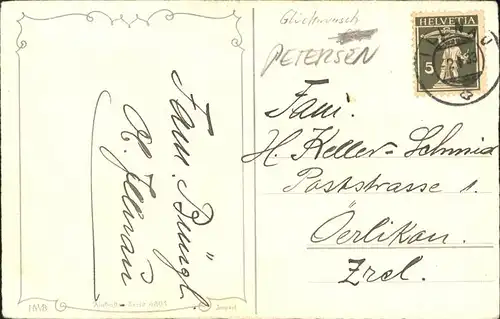 Glückwunsch
PETERSEN
HELVETIA
5
Fam.
H. Keller-Schmid
Poststrasse 1.
Oerlikon.
Zrch.
Fam. Büngl.